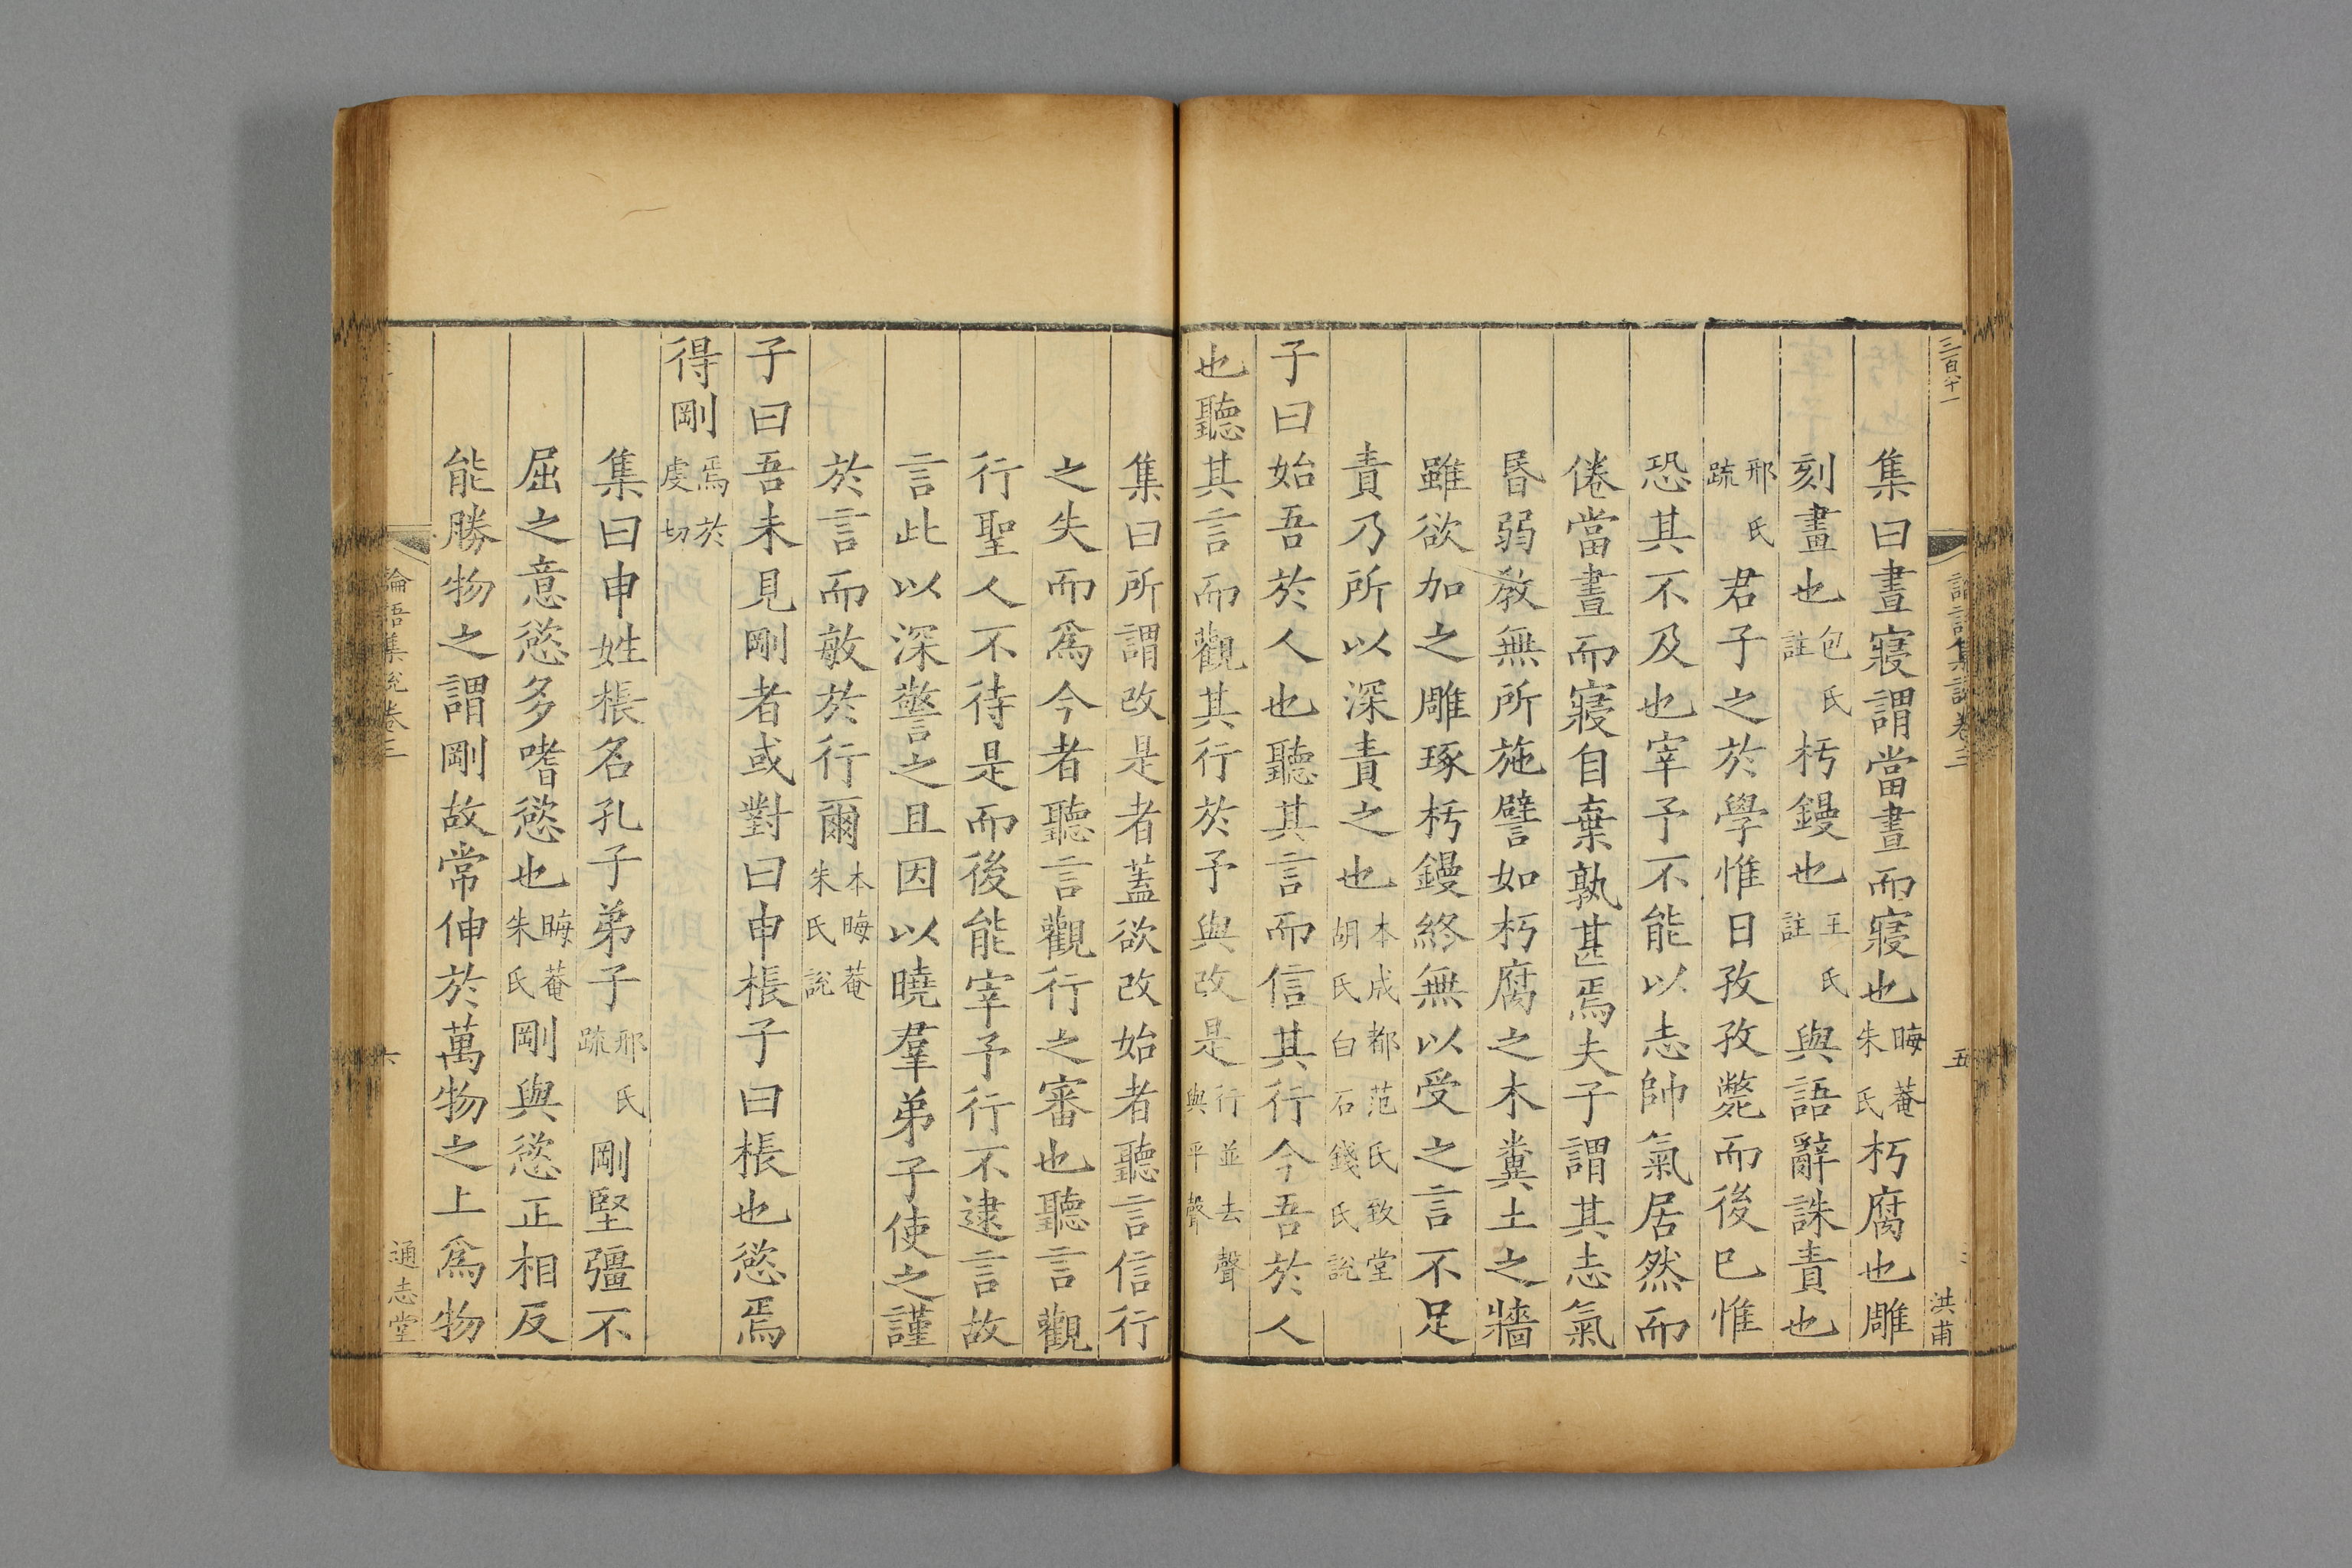 三百六十一
論語集說卷三
五
洪甫
集曰晝寢謂當晝而寢也晦菴朱氏朽腐也雕
刻畫也包氏註杇鏝也王氏註與語辭誅責也
邢氏疏君子之於學惟日孜孜斃而後已惟
恐其不及也宰予不能以志帥氣居然而
倦當晝而寢自棄孰甚焉夫子謂其志氣
昬弱敎無所施譬如朽腐之木糞土之牆
雖欲加之雕琢杇鏝終無以受之言不足
責乃所以深責之也本成都范氏致堂胡氏白石錢氏說
子曰始吾於人也聽其言而信其行今吾於人
也聽其言而觀其行於予與改是行並去聲與平聲
集曰所謂改是者蓋欲改始者聽言信行
之失而爲今者聽言觀行之審也聽言觀
行聖人不待是而後能宰予行不逮言故
言此以深警之且因以曉羣弟子使之謹
於言而敏於行爾本晦菴朱氏說
子曰吾未見剛者或對曰申棖子曰棖也慾焉
得剛焉於虔切
集曰申姓棖名孔子弟子邢氏疏剛堅彊不
屈之意慾多嗜慾也晦菴朱氏剛與慾正相反
能勝物之謂剛故常伸於萬物之上爲物
論語集說卷三
六
通志堂